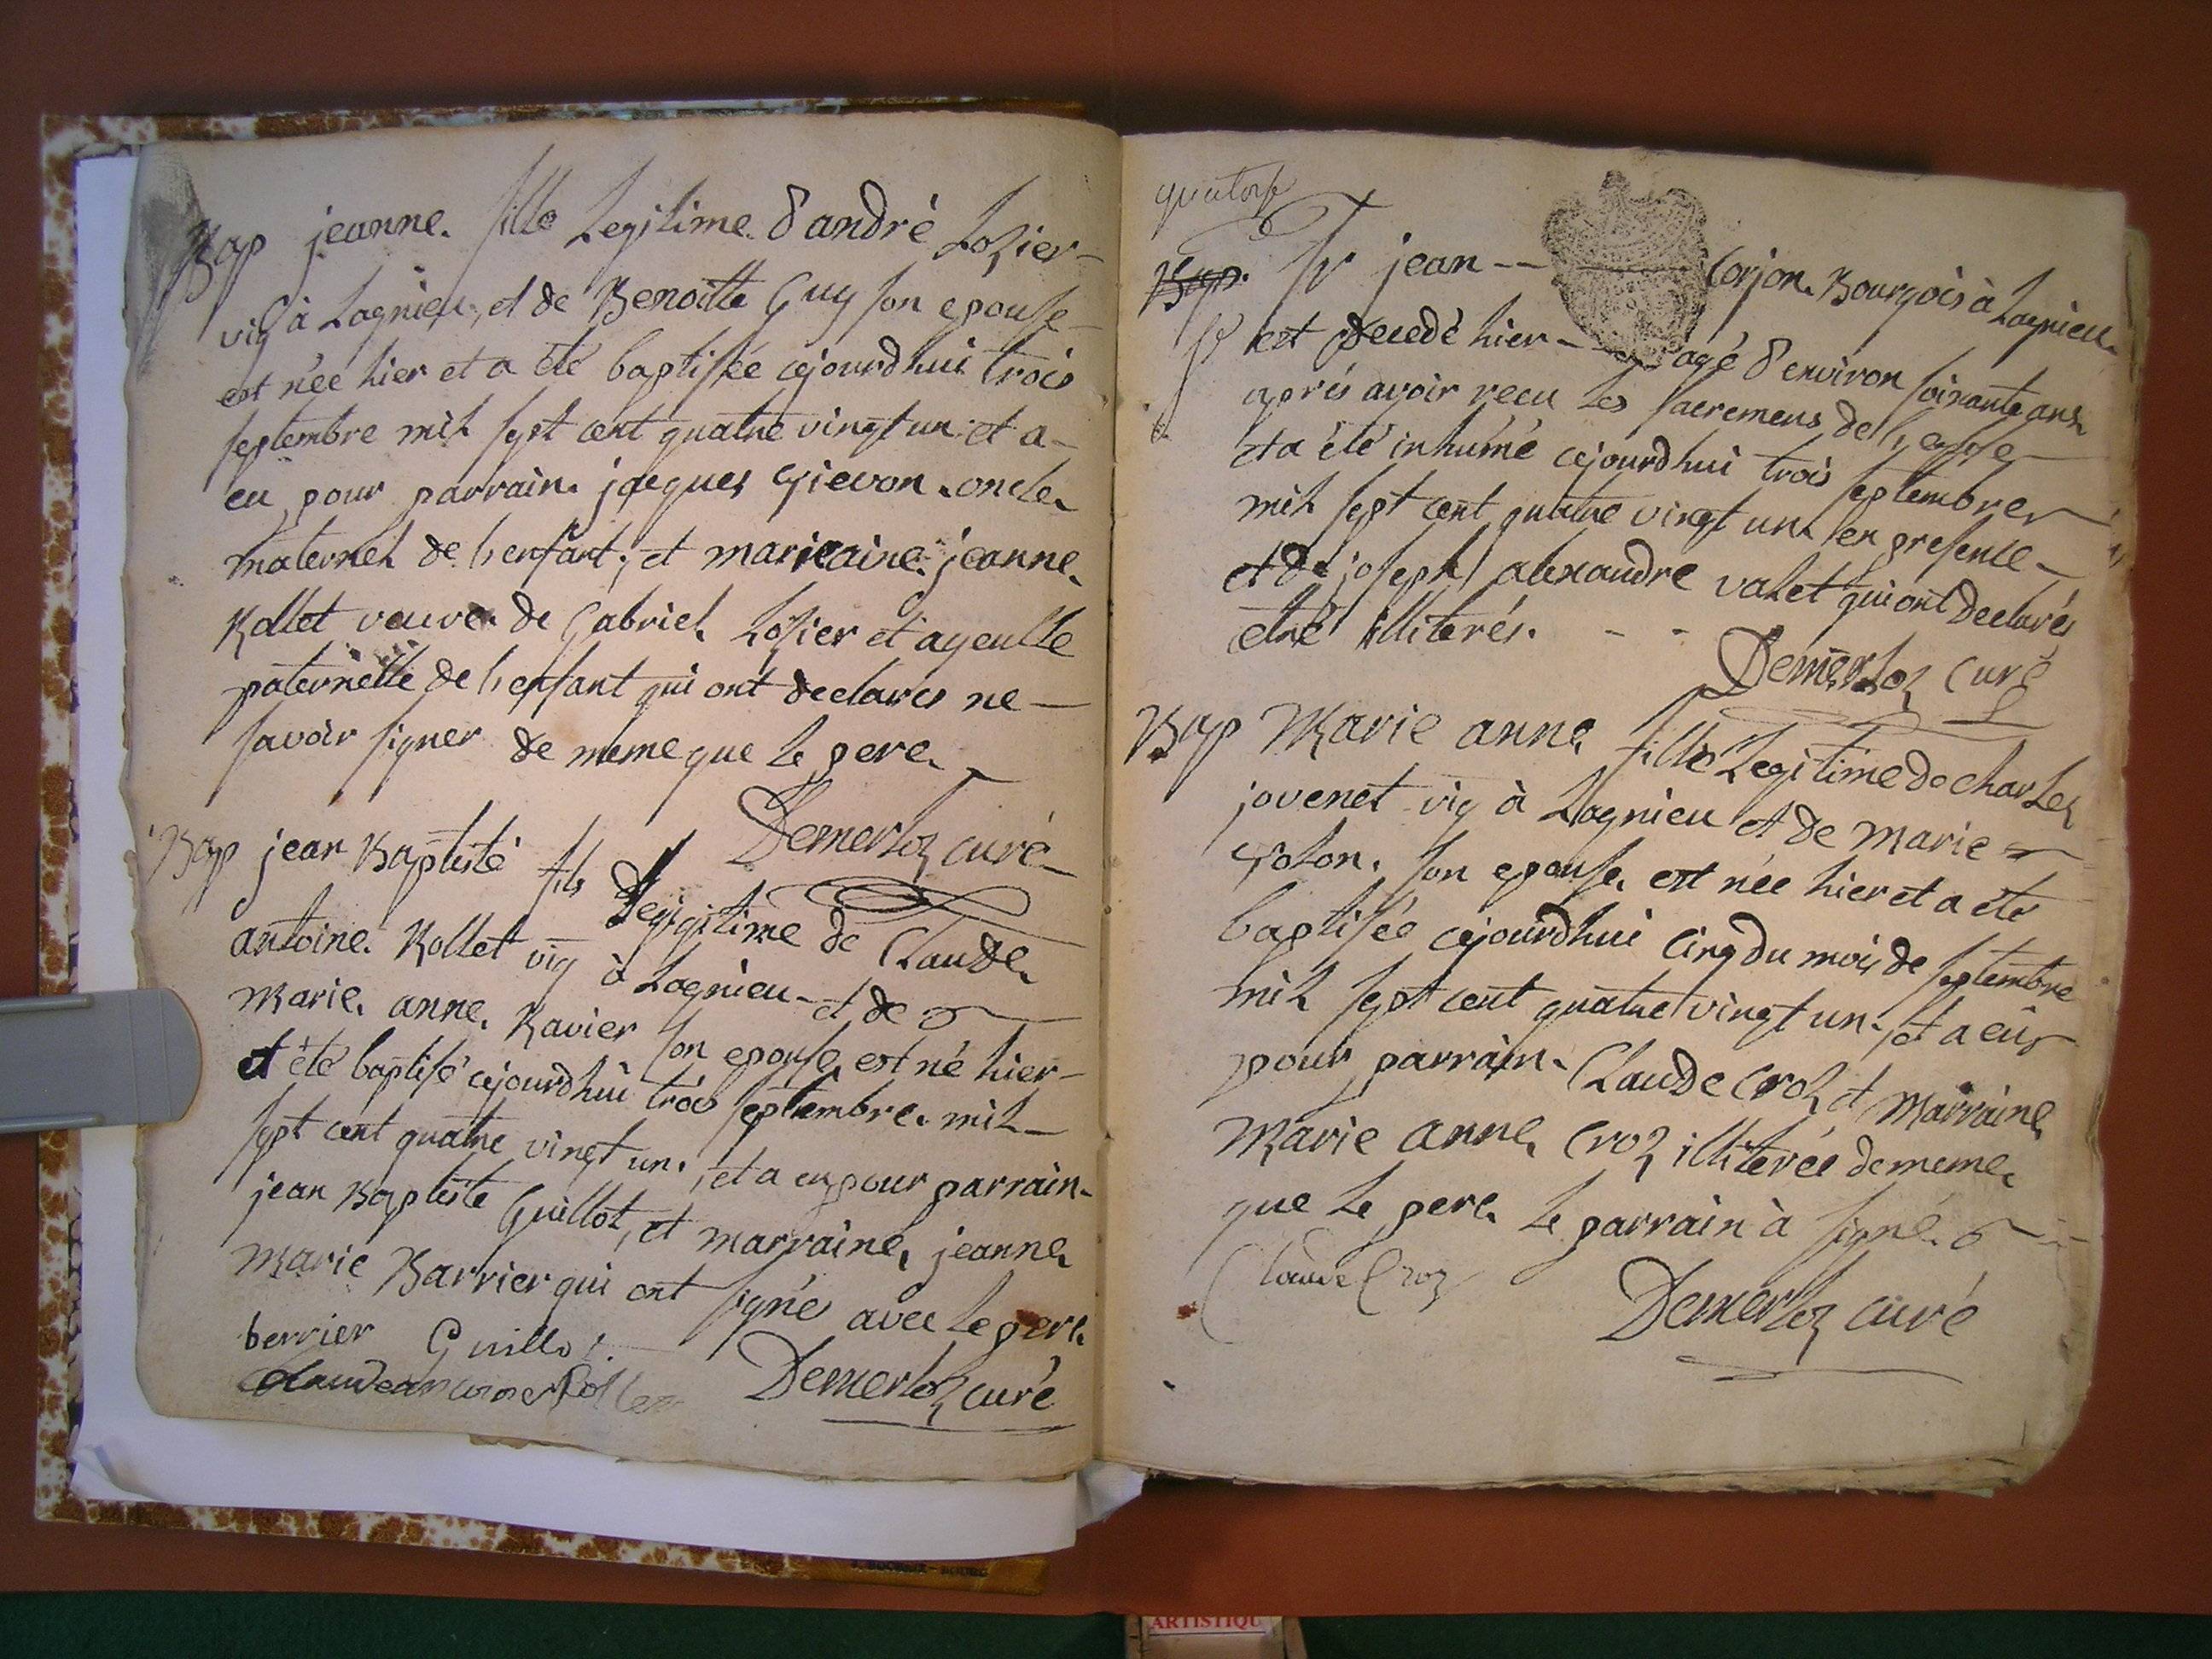 Bap jeanne fille Legitime d'andré Lozier
vig à Lagnieu, et de Benoitte Guy son epouse
est née hier et a été baptisée cejourdhui trois
septembre mil sept cent quatre vingt un et a
eu pour parrain jacques Grevon oncle
maternel de l'enfant, et marraine jeanne
Rollet veuve de Gabriel Lozier et ayeulle
paternelle de l'enfant qui ont declarés ne
savoir signer de meme que le pere
Demerloz curé
Bap jean Baptiste fils Legigitime de Claude
antoine Rollet vig à Lagnieu et de
Marie anne Ravier son epouse est né hier
et été baptisé cejourdhui trois septembre mil
sept cent quatre vingt un, et a eu pour parrain
jean Baptiste Guillot, et marraine jeanne
Marie Barrier qui ont signés avec le pere
berrier Guillot
Claude antoine Rollet Demerloz curé
quatorse
Bap. Sr jean -- Corjon Bourgois à Lagnieu
Sr est decedé hier agé d'environ soixante ans
aprés avoir recu les sacremens de l'eglise
et a été inhumé cejourdhui trois septembre
mil sept cent quatre vingt un en presence
et de joseph alexandre valet qui ont declarés
etre illiterés.
Demerloz curé
Bap Marie anne fille Legitime de charles
jovenet vig à Lagnieu et de marie
son epouse est née hier et a été
baptisée cejourdhui cinq du mois de septembre
mil sept cent quatre vingt un et a eu
pour parrain Claude Croz et marraine
Marie anne Croz illiterée de meme
que le pere le parrain à signé
Claude Croz
Demerloz curé
ARTISTIQU